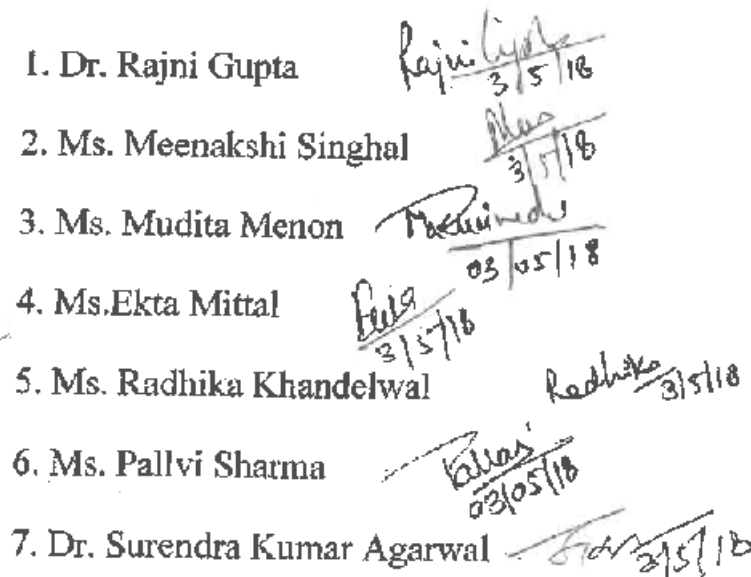 1. Dr. Rajni Gupta Rajni Gupta 3/5/18
2. Ms. Meenakshi Singhal 3/5/18
3. Ms. Mudita Menon 03/05/18
4. Ms.Ekta Mittal 3/5/18
5. Ms. Radhika Khandelwal Radhika 3/5/18
6. Ms. Pallvi Sharma 03/05/18
7. Dr. Surendra Kumar Agarwal 3/5/18